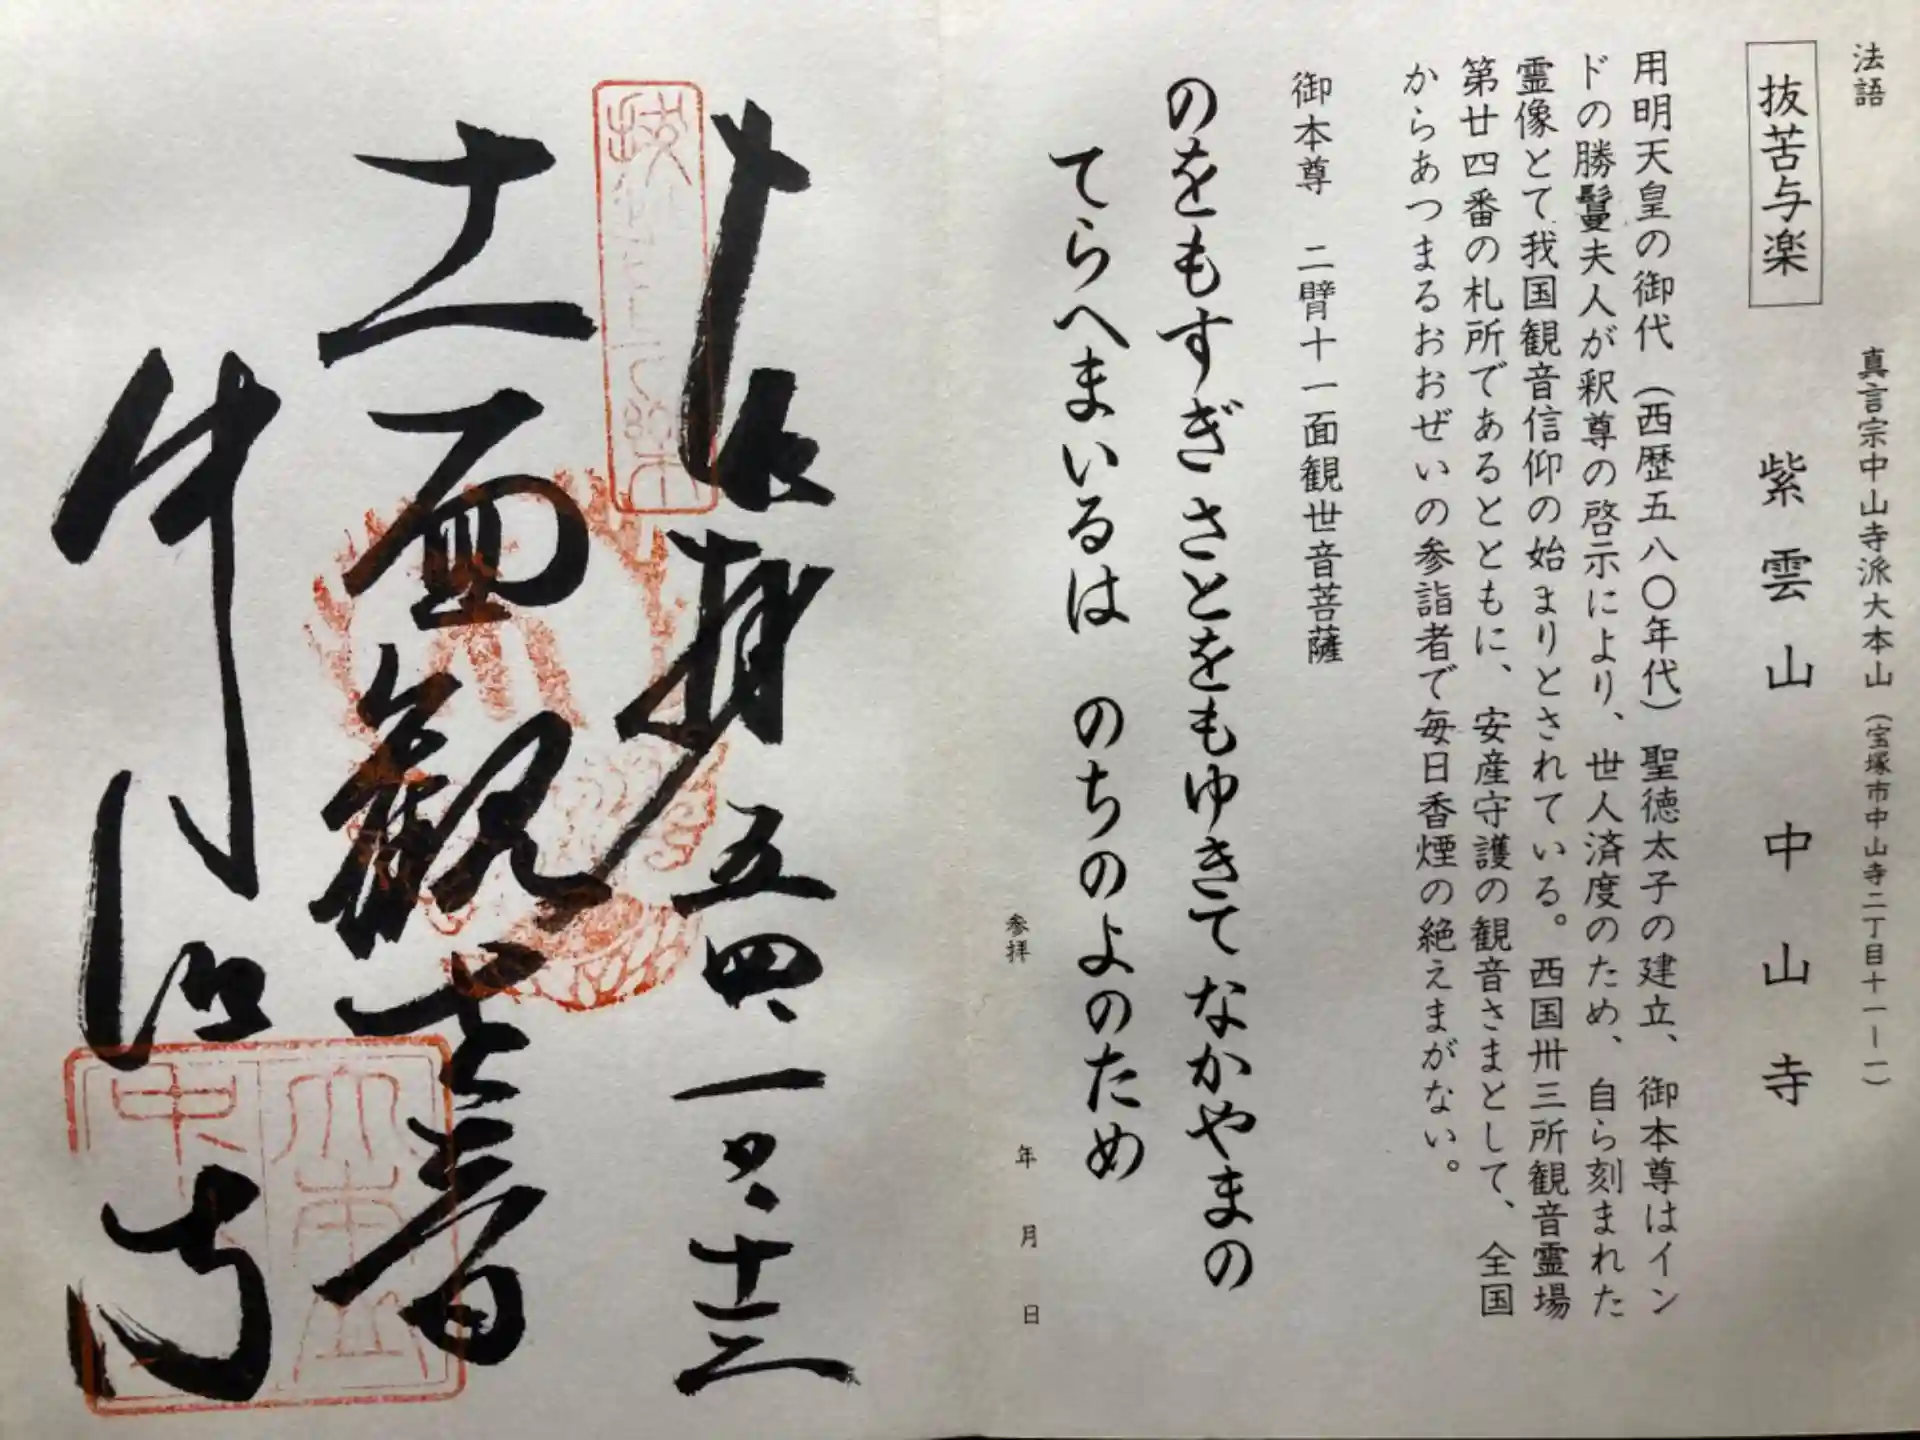 法語
真言宗中山寺派大本山（宝塚市中山寺二丁目十一ー一）
抜苦与楽
紫雲山 中山寺
用明天皇の御代（西歴五八〇年代）聖徳太子の建立、御本尊はイン
ドの勝鬘夫人が釈尊の啓示により、世人済度のため、自ら刻まれた
霊像とて我国観音信仰の始まりとされている。西国卅三所観音霊場
第廿四番の札所であるとともに、安産守護の観音さまとして、全国
からあつまるおおぜいの参詣者で毎日香煙の絶えまがない。
御本尊 二臂十一面観世音菩薩
のをもすぎ さとをもゆきて なかやまの
てらへまいるは のちのよのため
参拝 年 月 日
奉拝 五四、一〇、十三
十一面観世音
中山寺